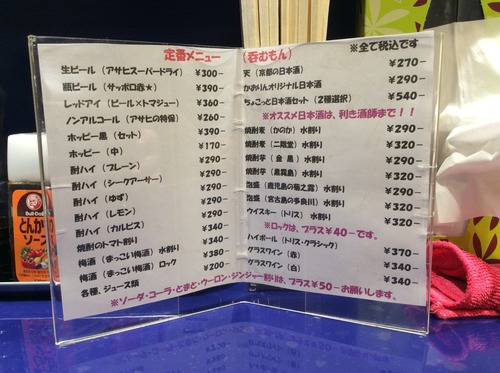 定番メニュー（呑むもん）
※全て税込です
生ビール（アサヒスーパードライ） ¥300-
瓶ビール（サッポロ赤★） ¥390-
レッドアイ（ビール×トマジュー） ¥360-
ノンアルコール（アサヒの特備） ¥260-
ホッピー黒（セット） ¥390-
ホッピー（中） ¥170-
酎ハイ（プレーン） ¥290-
酎ハイ（シークアーサー） ¥290-
酎ハイ（ゆず） ¥290-
酎ハイ（レモン） ¥290-
酎ハイ（カルピス） ¥340-
焼酎のトマト割り ¥340-
梅酒（まっこい梅酒）水割り ¥340-
梅酒（まっこい梅酒）ロック ¥380-
各種、ジュース類 ¥200-
天（京都の日本酒） ¥270-
かおりんオリジナル日本酒 ¥290-
ちょこっと日本酒セット（2種選択） ¥540-
※オススメ日本酒は、利き酒師まで！！
焼酎麦（かのか）水割り ¥290-
焼酎麦（二階堂）水割り ¥320-
焼酎芋（金 黒）水割り ¥290-
焼酎芋（黒霧島）水割り ¥320-
泡盛（鹿児島の菊之露）水割り ¥290-
泡盛（宮古島の多良川）水割り ¥320-
ウイスキー（トリス）水割り ¥320-
※ロックは、プラス¥40-です。
ハイボール（トリス・クラシック） ¥370-
グラスワイン（赤） ¥340-
グラスワイン（白） ¥340-
※ソーダ・コーラ・とまと・ウーロン・ジンジャー割りは、プラス¥50-お願いします。
Bull-Dog
とんかつ
ソース